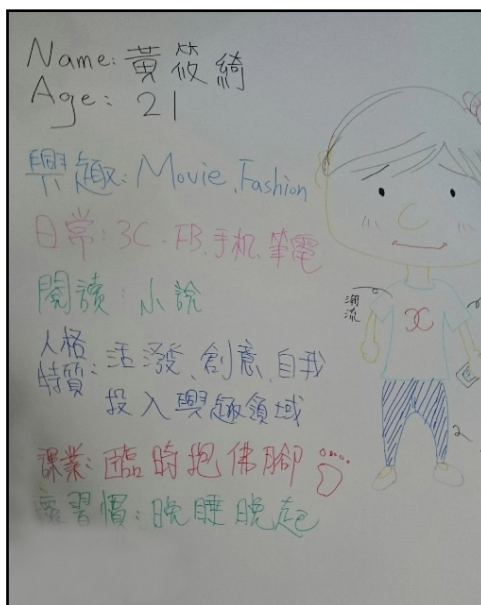 Name: 黃筱綺
Age: 21
興趣: Movie、Fashion
日常: 3C、FB、手机、筆電
閱讀: 小說
人格
特質: 活潑、創意、自我
投入興趣領域
潮流
3C
課業: 臨時抱佛腳
壞習慣: 晚睡晚起